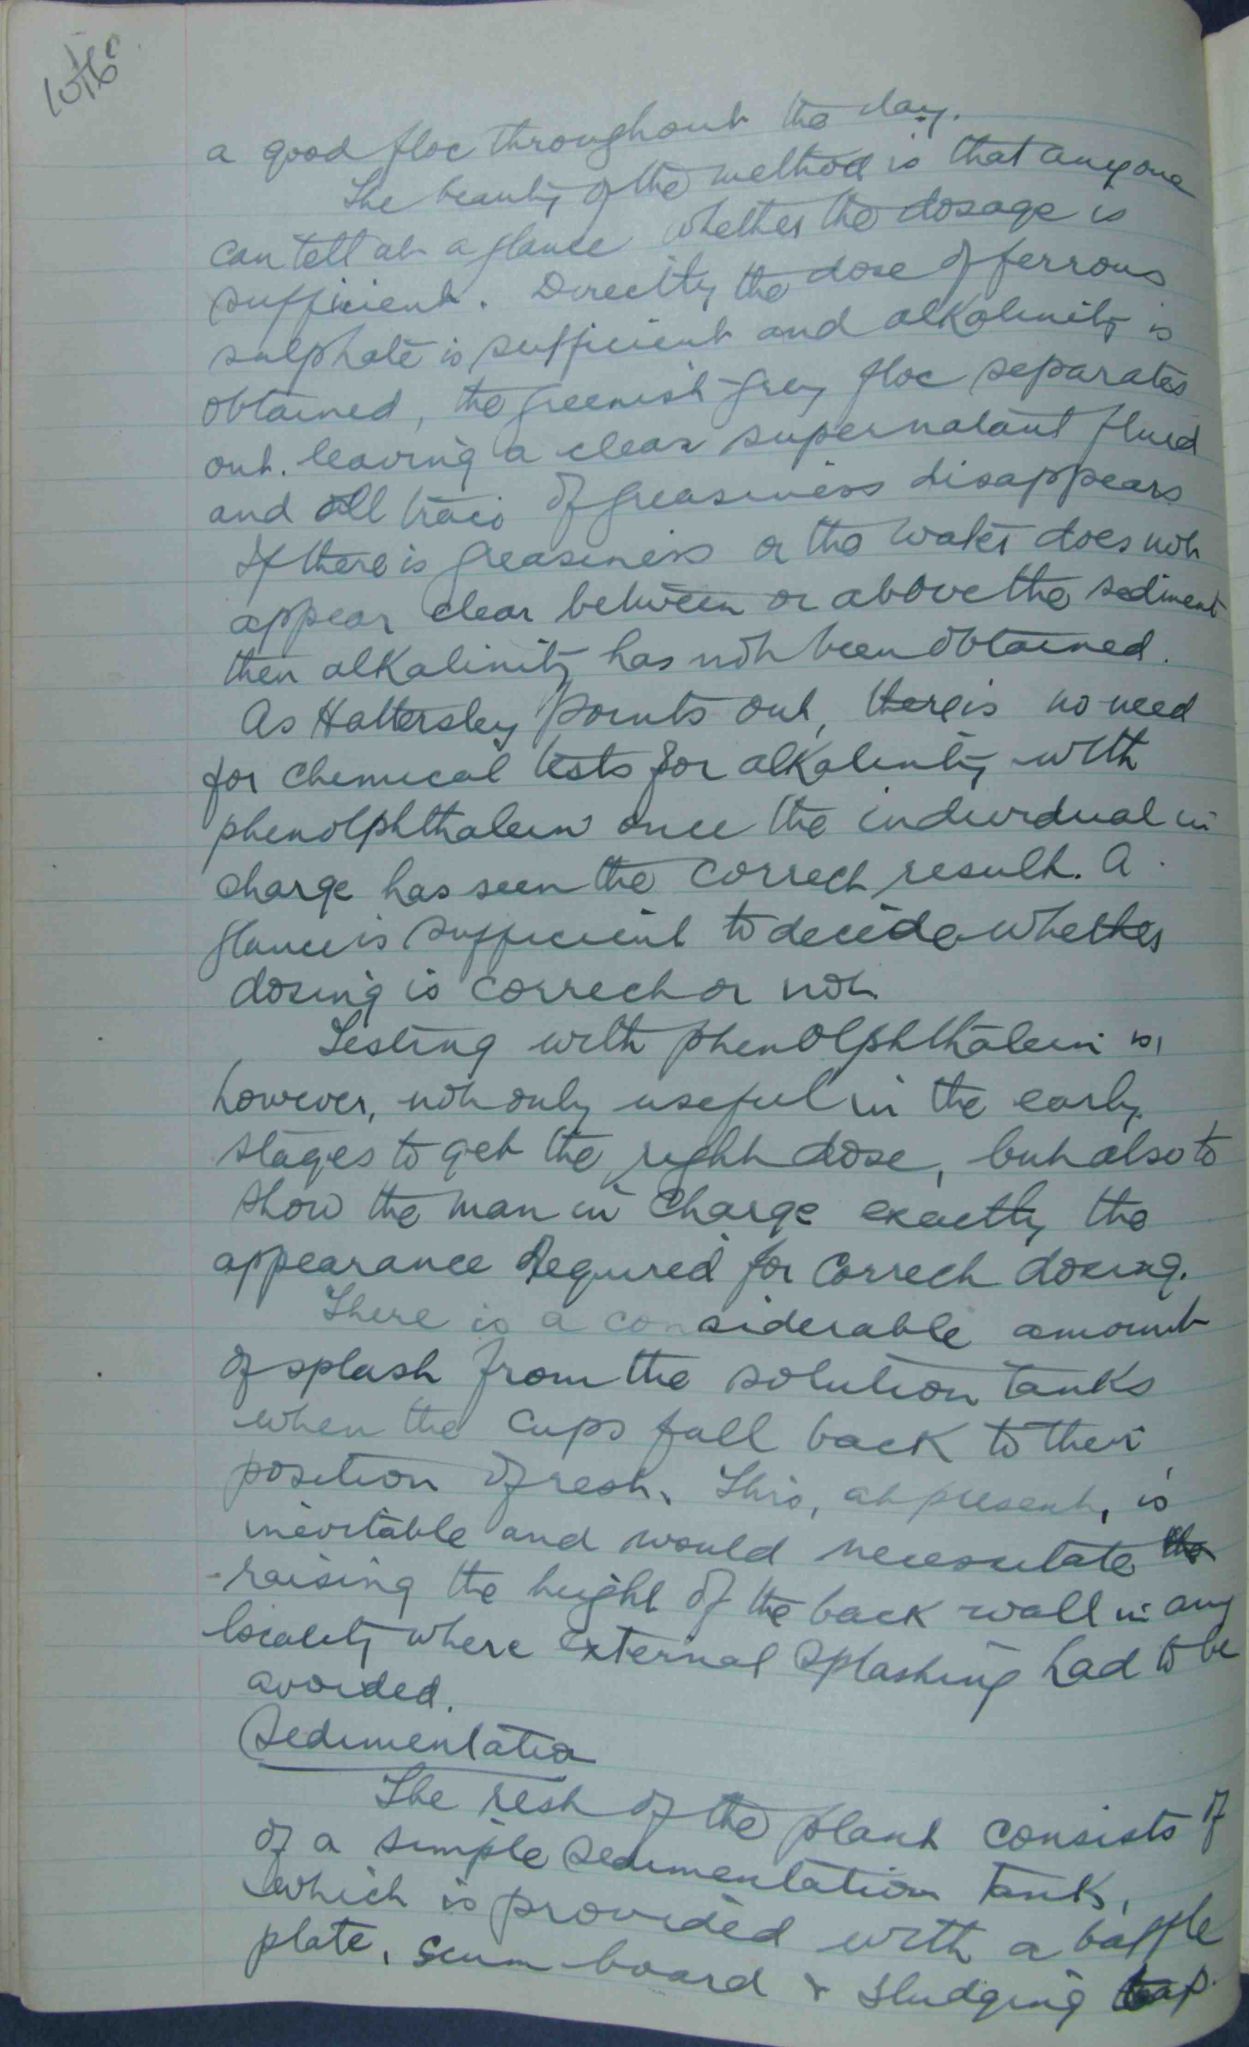 a good floc throughout the day.
The beauty of the method is that anyone
can tell at a glance whether the dosage is
sufficient. Directly the dose of ferrous
sulphate is sufficient and alkalinity is
obtained, the greenish-grey floc separates
out. leaving a clear supernatant fluid
and all trace of greasiness disappears
If there is greasiness or the water does not
appear clear between or above the sediment
then alkalinity has not been obtained.
As Hattersley points out, there is no need
for chemical tests for alkalinity with
phenolphthalein once the individual in
charge has seen the correct result. A
glance is sufficient to decide whether
dosing is correct or not.
Testing with phenolphthalein is,
however, not only useful in the early
stages to get the right dose, but also to
show the man in charge exactly the
appearance required for correct dosing.
There is a considerable amount
of splash from the solution tanks
when the cups fall back to their
position of rest. This, at present, is
inevitable and would necessitate the
raising the height of the back wall in any
locality where external splashing had to be
avoided.
Sedimentation
The rest of the plant consists of
of a simple sedimentation tank,
which is provided with a baffle
plate, scum board & sludging tap.